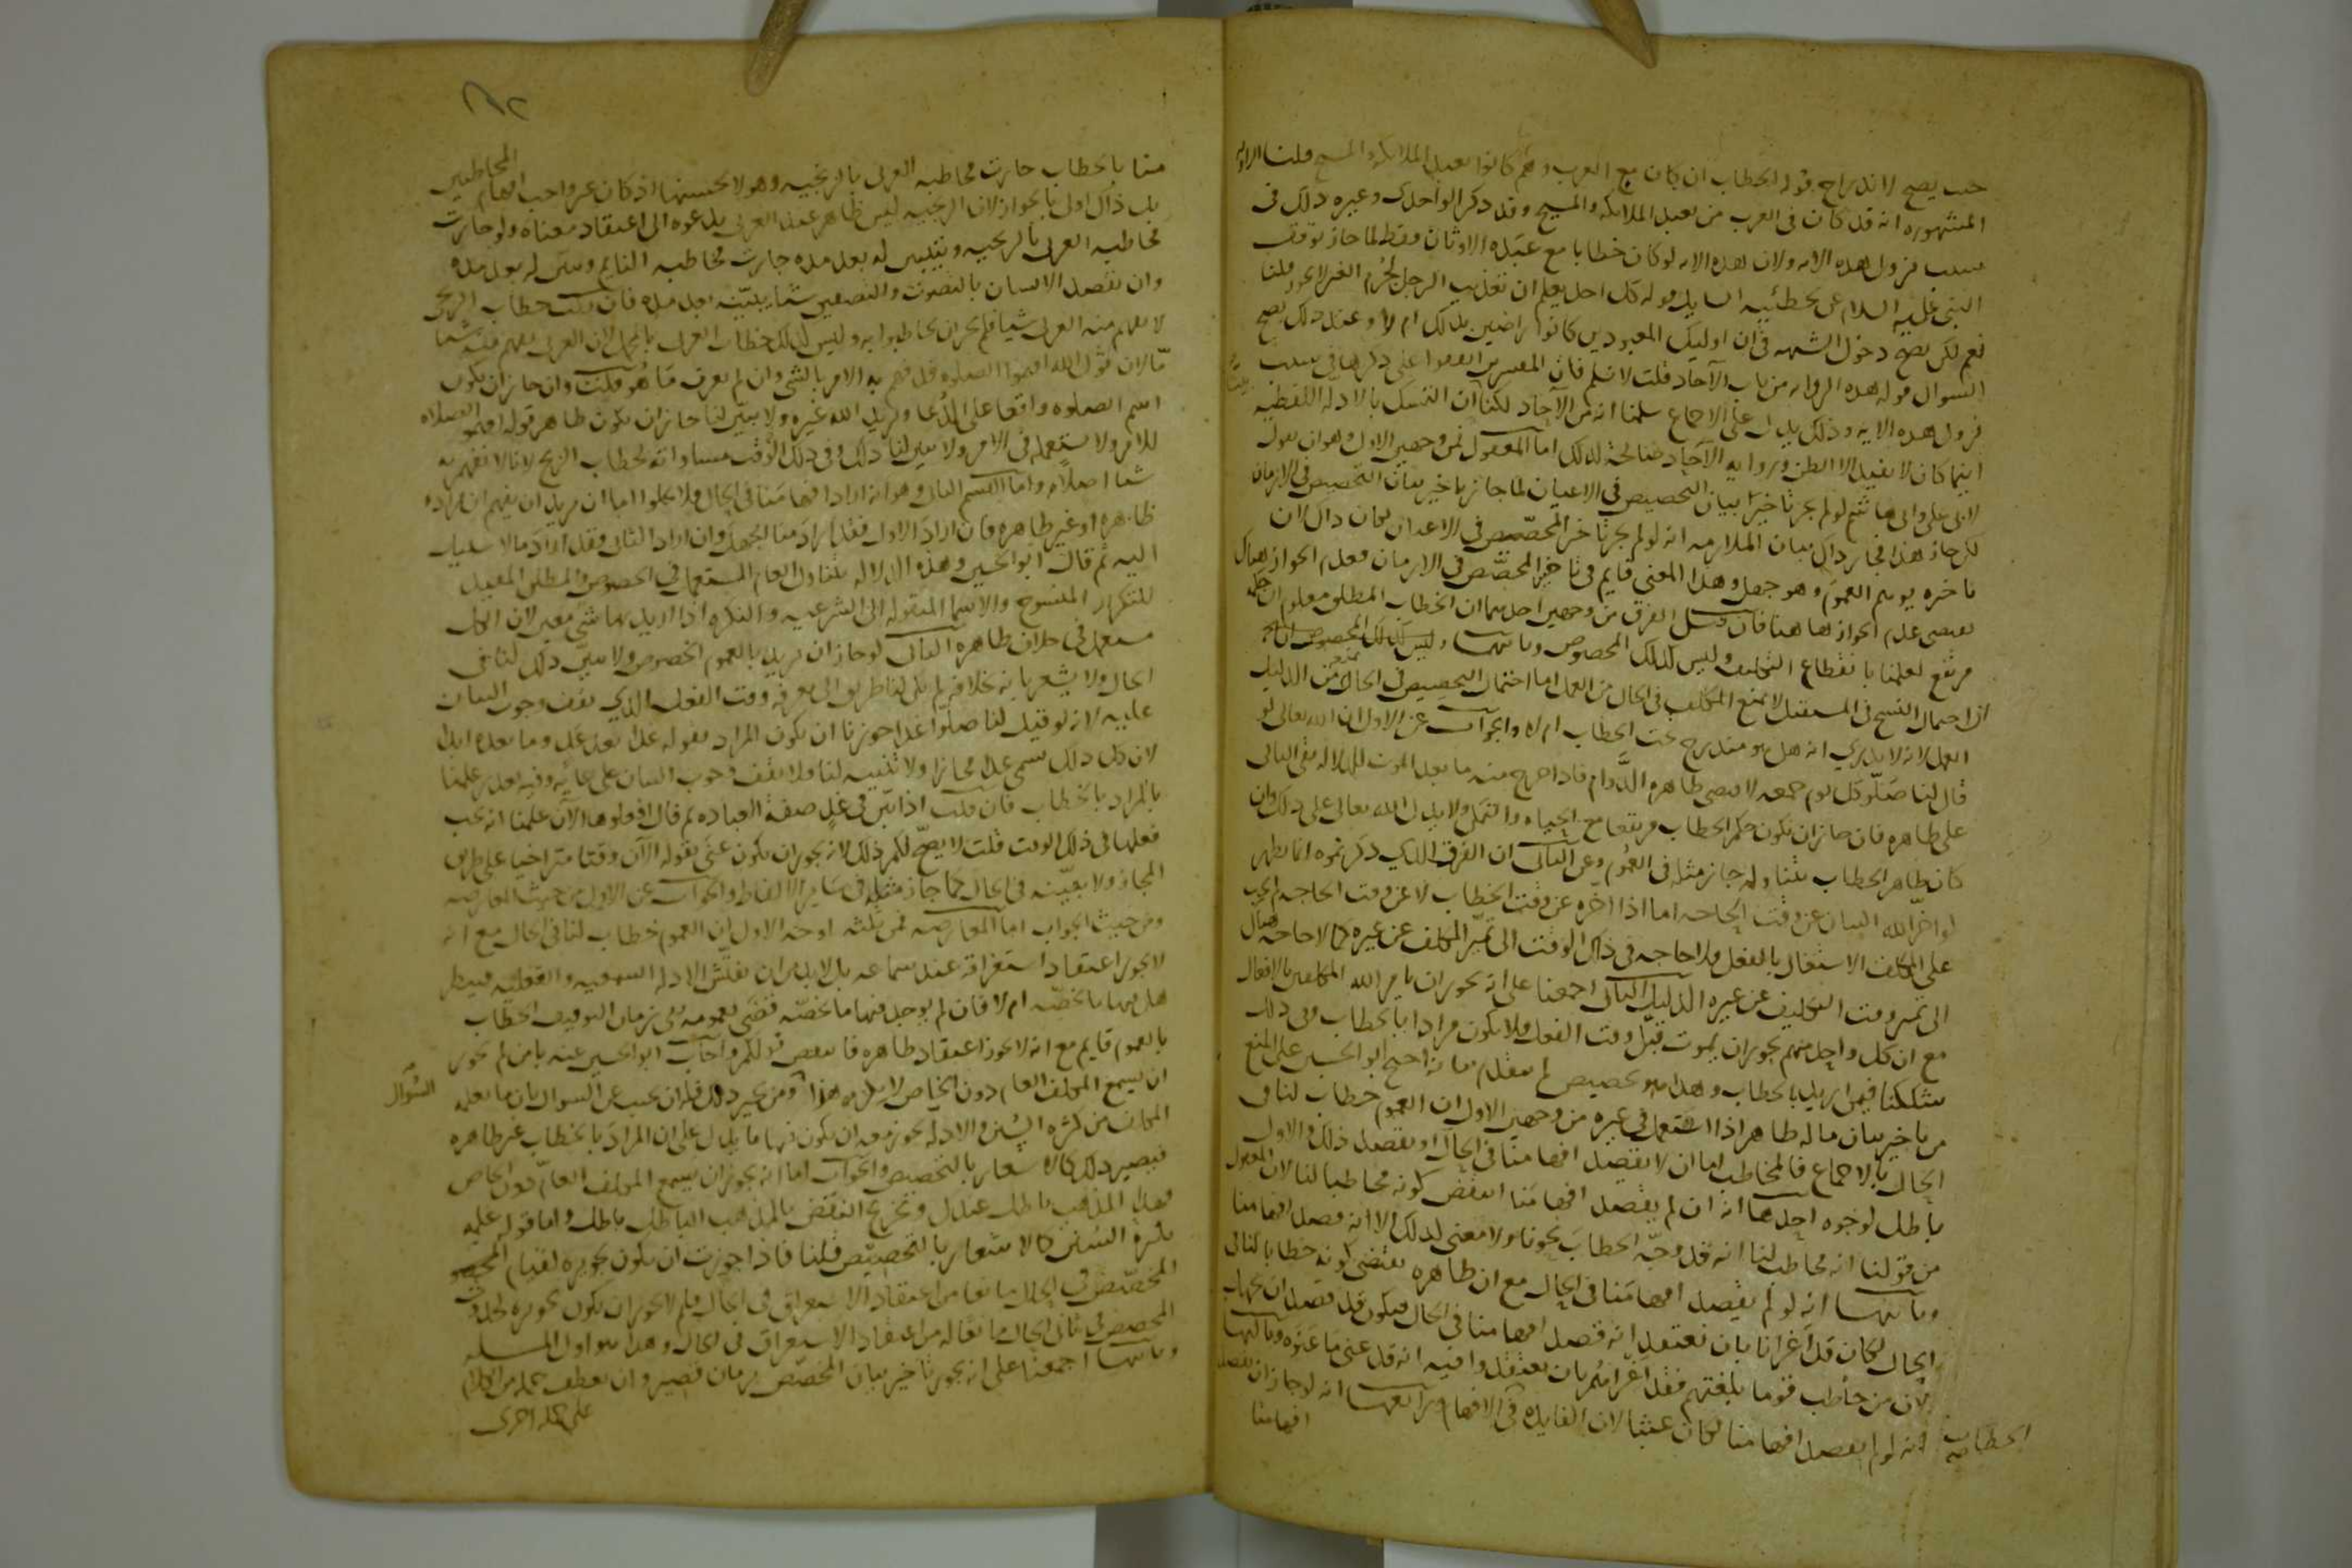 حتى يصح الاندراج قوله الخطاب ان كان مع العرب وهم كانوا يعبدون الملائكة والمسيح قلنا الرواية
المشهورة انه قد كان في العرب من يعبد الملائكة والمسيح وقد ذكر الواحدي وغيره ذلك في
سبب نزول هذه الاية ولان هذه الاية لو كان خطابا مع عبدة الاوثان فقط لما جاز توقف
النبي عليه السلام عن تخطئة السايل قوله كل احد يعلم ان تعذيب الرجل بجرم الغير لا يجوز قلنا
نعم لكن يصح دخول الشبهة في ان اوليك المعبودين كانوا راضين بذلك ام لا وعند ذلك يصح
السوال قوله هذه الرواية من باب الآحاد قلت لا نسلم فان المفسرين اتفقوا على ذكرها في سبب
نزول هذه الاية وذلك يدل على الاجماع سلمنا انه من الآحاد لكنا ان التمسك بالادلة اللفظية
اينما كان لا يفيد الا الظن ورواية الآحاد صالحة لذلك اما المعقول فمن وجهين الاول وهو ان نقول
لابي علي وابي هاشم لو لم يجز تاخير بيان التخصيص في الاعيان لما جاز تاخير بيان التخصيص في الازمان
لكن جاز هذا فجاز ذاك بيان الملازمة انه لو لم يجز تاخير المخصص في الاعيان لكان ذاك لان
تاخيره يوهم العموم وهو جهل وهذا المعنى قايم في تاخير المخصص في الازمان فعدم الجواز هناك
يقتضي عدم الجواز هاهنا فان قيل الفرق من وجهين احدهما ان الخطاب المطلق معلوم ان حكمه
مرتفع لعلمنا بانقطاع التكليف وليس كذلك المخصوص وثانيهما
ان احتمال النسخ في المستقبل لا يمنع المكلف في الحال من العمل اما احتمال التخصيص في الحال يمنع من الدليل
العمل لانه لا يدري انه هل هو مندرج تحت الخطاب ام لا والجواب عن الاول ان الله تعالى لو
قال لنا صلوا كل يوم جمعة لاقتضى ظاهره الدوام فاذا خرج منه ما بعد الموت للدلالة بقي الباقي
على ظاهره فان جاز ان يكون حكم الخطاب مرتفعا مع الحياة والتمكن ولا يدل الله تعالى على ذلك وان
كان ظاهر الخطاب يتناوله جاز مثله في العموم وعن الثاني ان الفرق الذي ذكرتموه انما يظهر
لو اخر الله البيان عن وقت الحاجة اما اذا اخره عن وقت الخطاب لا عن وقت الحاجة لم يجب
على المكلف الاشتغال بالفعل فلا حاجة في ذلك الوقت الى تميز المكلف عن غيره كما لا حاجة هناك
الى تميز وقت التكليف عن غيره الدليل الثاني اجمعنا على انه يجوز ان يامر الله المكلفين بالافعال
مع ان كل واحد منهم يجوز ان يموت قبل وقت الفعل فلا يكون مرادا بالخطاب وفي ذلك
تشككنا فيمن اريد بالخطاب وهذا هو تخصيص لم يتقدم بيانه احتج ابو الحسين على المنع
من تاخير بيان ما له ظاهر اذا استعمل في غيره من وجهين الاول ان العموم خطاب لنا في
الحال بالاجماع فالمخاطب اما ان لا يقصد افهامنا في الحال او يقصد ذلك والاول
باطل لوجوه احدها انه ان لم يقصد افهامنا انتقض كونه مخاطبا لنا لان المعقول
من قولنا انه مخاطب لنا انه قد وجه الخطاب نحونا ولا معنى لذلك الا انه قصد افهامنا
وثانيهما انه لو لم يقصد افهامنا في الحال مع ان ظاهره يقتضي كونه خطابا لنا في
الحال لكان قد اغرانا بان نعتقد انه قصد افهامنا في الحال فيكون قد قصد ان نجهل
لان من خاطب قوما بلغتهم فقد اغراهم بان يعتقدوا فيه انه قد عنى ما عنوه وثالثها
انه لو لم يقصد افهامنا لكان عبثا لان الفايدة في الافهام ورابعها انه لو جاز ان يقصد
الخطاب
افهامنا
منا بالخطاب جازت مخاطبة العربي بالزنجية وهو لا يحسنها اذ كان غير واجب افهام المخاطبين
بل ذاك اولى بالجواز لان الزنجية ليس ظاهر عند العربي يدعوه الى اعتقاد معناه ولو جازت
مخاطبة العربي بالزنجية ويتبين له بعد مدة جازت مخاطبة النايم ويبين له بعد مدة
وان يقصد الانسان بالتصويت والتصفيق شيا يبينه بعد مدة فان قلت خطاب الزنجي
لا يفهم منه العربي شيا فلم يجز ان يخاطبوا به وليس كذلك خطاب العرب بالمجمل لان العربي يفهم منه شيا
ما لان قول الله اقيموا الصلوة قد فهم به الامر بالشي وان لم يعرف ما هو قلت وان جاز ان يكون
اسم الصلوة واقعا على الدعا ويريد الله غيره ولا يبين لنا جاز ان يكون ظاهر قوله اقيموا الصلاة
للامر ولا يستعمله في الامر ولا يبين لنا ذلك وفي ذلك الوقت مساواته لخطاب الزنج لانا لا نفهم به
شيا اصلا واما القسم الثاني وهو انه اراد افهامنا في الحال فلا يخلوا اما ان يريد ان يفهم ان مراده
ظاهره او غير ظاهره فان اراد الاول فقد اراد منا الجهل وان اراد الثاني فقد اراد ما لا سبيل
اليه ثم قال ابو الحسين وهذه الدلالة تتناول العام المستعمل في الخصوص والمطلق المفيد
للتكرار المنسوخ والاسما المنقولة الى الشرعية والنكرة اذا اريد بها شي معين لان الكل
مستعمل في خلاف ظاهره الثاني لو جاز ان يريد بالعموم الخصوص ولا يبين ذلك لنا في
الحال ولا يشعر بانه بخلافه لم يكن لنا طريق الى معرفة وقت الفعل الذي يقف وجوب البيان
عليه لانه لو قيل لنا صلوا غدا جوزنا ان يكون المراد بقوله غدا بعد غد وما بعده ابدا
لان كل ذلك يسمى غدا مجازا ولا تبيينه لنا فلا يقف وجوب البيان على غاية وفيه تعذر علمنا
بالمراد بالخطاب فان قلت اذا بين في غد صفة العبادة ثم قال افعلوها الآن علمنا انه يجب
فعلها في ذلك الوقت قلت لا يصح لكم ذلك لانه يجوز ان يكون عنى بقوله الآن وقتا متراخيا على طريق
المجاز ولا يبينه في الحال كما جاز مثله في ساير الالفاظ والجواب عن الاول من حيث المعارضة
ومن حيث الجواب اما المعارضة فمن ثلثة اوجه الاول ان العموم خطاب لنا في الحال مع انه
لا يجوز اعتقاد استغراقه عند سماعه بل لا بد من ان يفتش الادلة السمعية والعقلية فينظر
هل فيها ما يخصه ام لا فان لم يوجد فيها ما يخصه قضى بعمومه ففي زمان التوقف الخطاب
بالعموم قايم مع انه لا يجوز اعتقاد ظاهره فانتقض قولكم واجاب ابو الحسين عنه بان من لم يجوز
ان يسمع المكلف العام دون الخاص لا يلزمه هذا ومن يجيز ذلك فله ان يجيب عن السوال بان ما يعلمه
السؤال
المكلف من كثرة السنن والادلة يجوز معه ان يكون فيها ما يدل على ان المراد بالخطاب غير ظاهره
فيصير ذلك كالاشعار بالتخصيص والجواب اما انه يجوز ان يسمع المكلف العام دون الخاص
فهذا المذهب باطل عندك وتخريج النقض بالمذهب الباطل باطل واما قوله علمه
بكثرة السنن كالاشعار بالتخصيص قلنا فاذا جوزت ان يكون تجويزه لقيام
المخصص في الحال مانعا من اعتقاد الاستغراق في الحال فلم لا يجوز ان يكون تجويزه لحدوث
المخصص في ثاني الحال مانعا له من اعتقاد الاستغراق في الحال وهذا هو اول المسلة
وثانيها اجمعنا على انه يجوز تاخير بيان المخصص بزمان قصير وان يعطف جملة من الكلام
على جملة اخرى